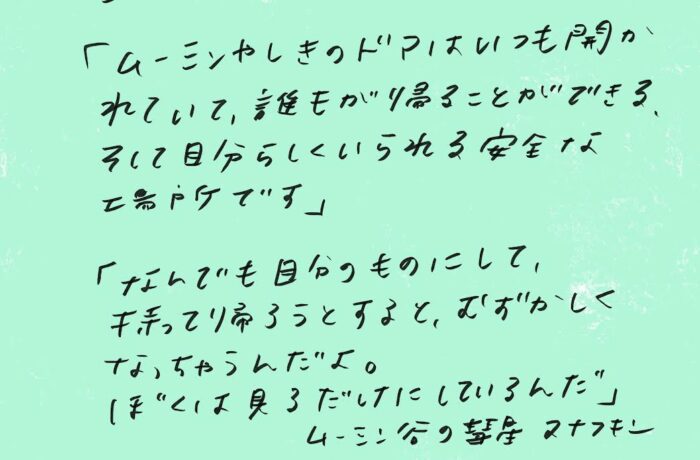 「ムーミンやしきのドアはいつも開か
れていて、誰もが帰ることができる、
そして自分らしくいられる安全な
場所です」
「なんでも自分のものにして、
持って帰ろうとすると、むずかしく
なっちゃうんだよ。
ぼくは見るだけにしているんだ」
ムーミン谷の彗星 スナフキン